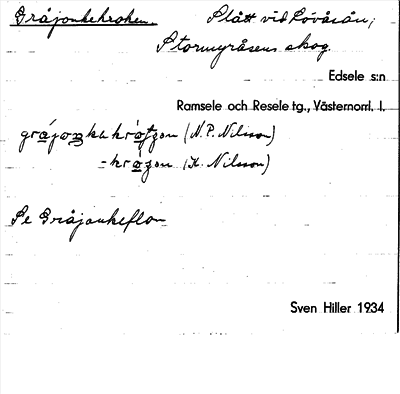 Gråjonkekroken. Slått vid Lövåsån;
Stormyråsens skog.
Edsele s:n
Ramsele och Resele tg., Västernorrl. l.
(N.P. Nilsson)
(K. Nilsson)
Se Gråjonkeflon
Sven Hiller 1934